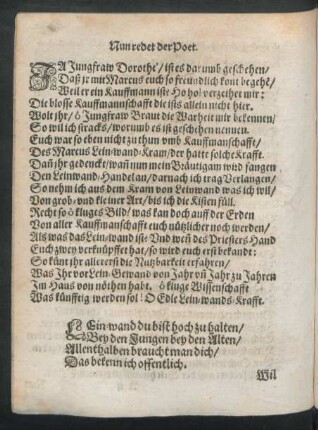 Nun redet der Poet.
JA Jungfraw Dorothe/ ist es darumb geschehen/
Daß jr mit Marcus euch so freundlich kont begehẽ/
Weil er ein Kauffmann ist? Ho ho! verzeihet mir:
Die blosse Kauffmannschafft die ists allein nicht hier.
Wolt jhr/ ô Jungfraw Braut die Warheit mir bekennen/
So wil ich stracks/ worumb es ist geschehen nennen.
Euch war so eben nicht zu thun vmb Kauffmanschafft/
Des Marcus Lein-wand-Kram/ der hatte solche Krafft.
Dañ jhr gedencke/ wañ nun mein Bräutigam wird fangen
Den Leinwand-Handel an/ darnach ich trag Verlangen/
So nehm ich aus dem Kram von Leinwand was ich wil/
Von grob- und kleiner Art/ bis ich die Kisten füll.
Recht so ô kluges Bild/ was kan doch auff der Erden
Von aller Kauffmanschafft euch nützlicher noch werden/
Als was das Lein-wand ist? Und weñ des Priesters Hand
Euch zwey verknüpffet hat/ so wird euch erst bekandt:
So könt jhr allererst die Nutzbarkeit erfahren/
Was Jhr vor Lein-Gewand von Jahr vñ Jahr zu Jahren
Im Haus von nöthen habt. ô kluge Wissenschafft
Was künfftig werden sol! O Edle Lein-wands-Krafft.
LEin-wand du bist hoch zu halten/
Bey den Jungen bey den Alten/
Allenthalben braucht man dich/
Das bekenn ich offentlich.
Wil